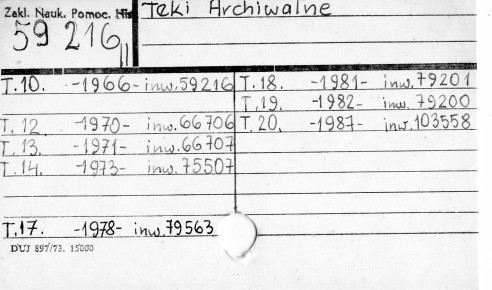 Zakl. Nauk. Pomoc. Hist
59 216 II
Teki Archiwalne
T.10. -1966- inw.59216
T.12 -1970- inw.66706
T.13. -1971- inw.66707
T.14. -1973- inw.75507
T.17. -1978- inw.79563
T.18. -1981- inw.79201
T.19. -1982- inw.79200
T.20. -1987- inw.103558
DUJ 897/73. 15000